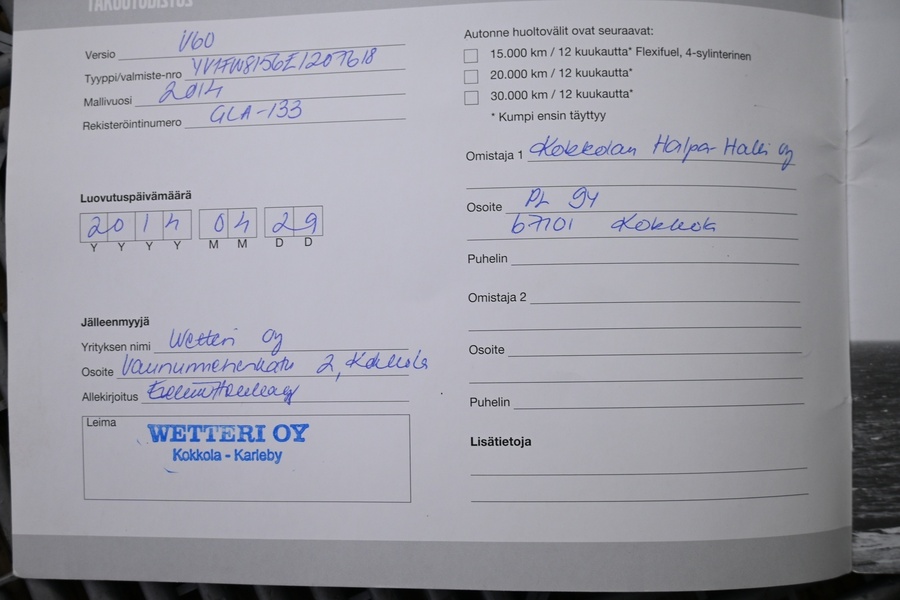 TAKUUTODISTUS
Versio V60
Tyyppi/valmiste-nro YV1FW8156E1207618
Mallivuosi 2014
Rekisteröintinumero GLA-133
Luovutuspäivämäärä
2014 04 29
Y Y Y Y M M D D
Jälleenmyyjä
Yrityksen nimi Wetteri Oy
Osoite Vaunumiehenkatu 2, Kokkola
Allekirjoitus
Leima
WETTERI OY
Kokkola - Karleby
Autonne huoltovälit ovat seuraavat:
15.000 km / 12 kuukautta* Flexifuel, 4-sylinterinen
20.000 km / 12 kuukautta*
30.000 km / 12 kuukautta*
* Kumpi ensin täyttyy
Omistaja 1 Kokkolan Halpa-Halli Oy
Osoite PL 94
67101 Kokkola
Puhelin
Omistaja 2
Osoite
Puhelin
Lisätietoja